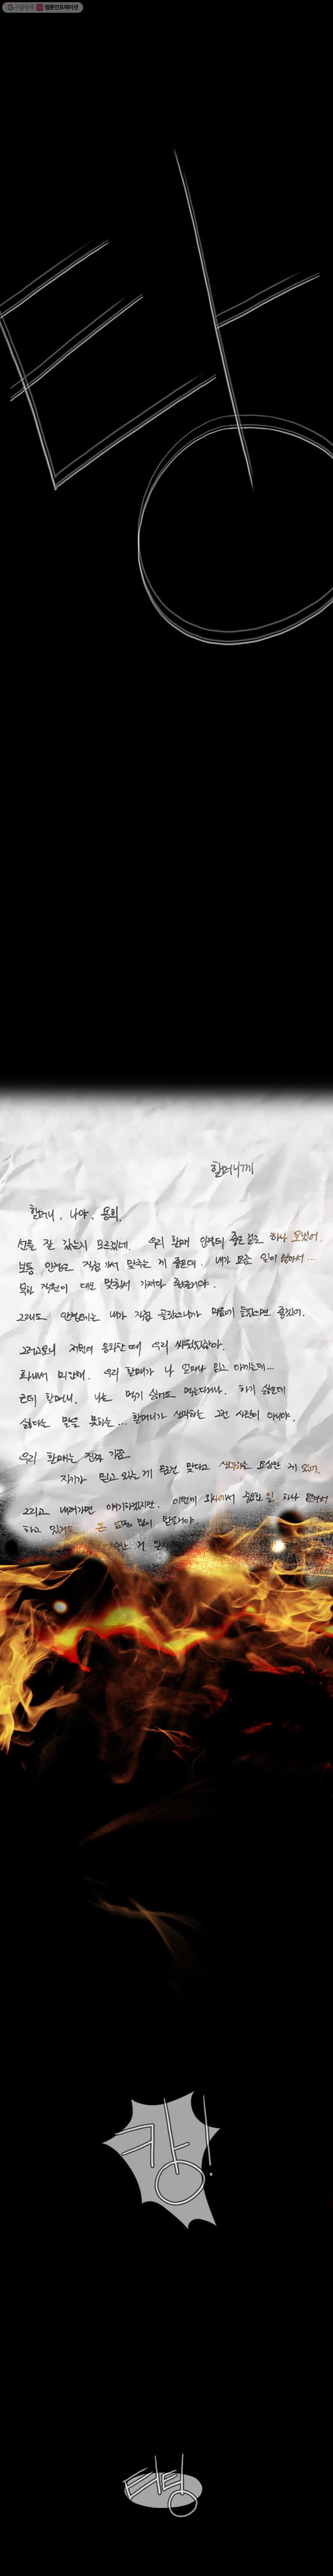 구글검색 웹툰인포메이션
탕
할머니께
할머니, 나야. 용희.
선물 잘 갔는지 모르겠네. 우리 할매 안경테 좋은 걸로 하나 보냈어.
보통 안경은 직접 가서 맞추는 게 좋은데. 내가 요즘 일이 많아서...
부탁 직원이 대신 맞춰서 가져다 줄거야.
그래도 안경테는 내가 직접 골랐으니까 마음에 들었으면 좋겠어.
그러고보니 저번에 통화할 때 우리 싸웠었잖아.
화내서 미안해. 우리 할매가 나 얼마나 믿고 아끼는데...
근데 할머니. 나는 먹기 싫어도 먹는다거나. 하기 싫은데
싫다는 말을 못하는... 할머니가 생각하는 그런 사람이 아니야.
우리 할매는 진짜 가끔..
자기가 믿고 있는 게 무조건 맞다고 생각하는 요상한 게 있어.
그리고 내려가면 얘기하겠지만. 이번에 회사에서 중요한 일 하나 맡아서
하고 있거든. 돈 많이
캉!
터텅